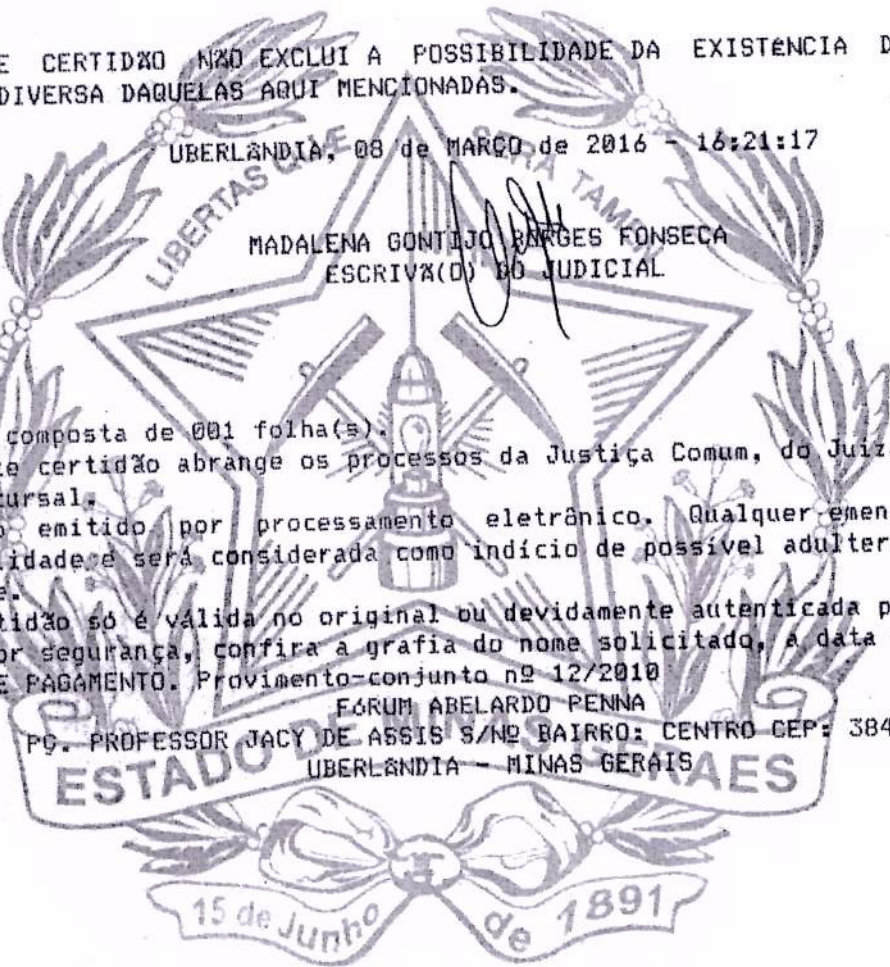 E CERTIDÃO NÃO EXCLUI A POSSIBILIDADE DA EXISTÊNCIA D
DIVERSA DAQUELAS AQUI MENCIONADAS.
UBERLÂNDIA, 08 de MARÇO de 2016 - 16:21:17
LIBERTAS QUE SERA TAMEN
MADALENA GONTIJO BORGES FONSECA
ESCRIVÃ(O) DO JUDICIAL
composta de 001 folha(s).
te certidão abrange os processos da Justiça Comum, do Juiza
cursal.
o emitido por processamento eletrônico. Qualquer emen
lidade e será considerada como indício de possível adulter
e.
tidão só é válida no original ou devidamente autenticada p
or segurança, confira a grafia do nome solicitado, a data
E PAGAMENTO. Provimento-conjunto nº 12/2010
FÓRUM ABELARDO PENNA
PÇ. PROFESSOR JACY DE ASSIS S/Nº BAIRRO: CENTRO CEP: 384
UBERLÂNDIA - MINAS GERAIS
ESTADO DE MINAS GERAES
15 de Junho de 1891